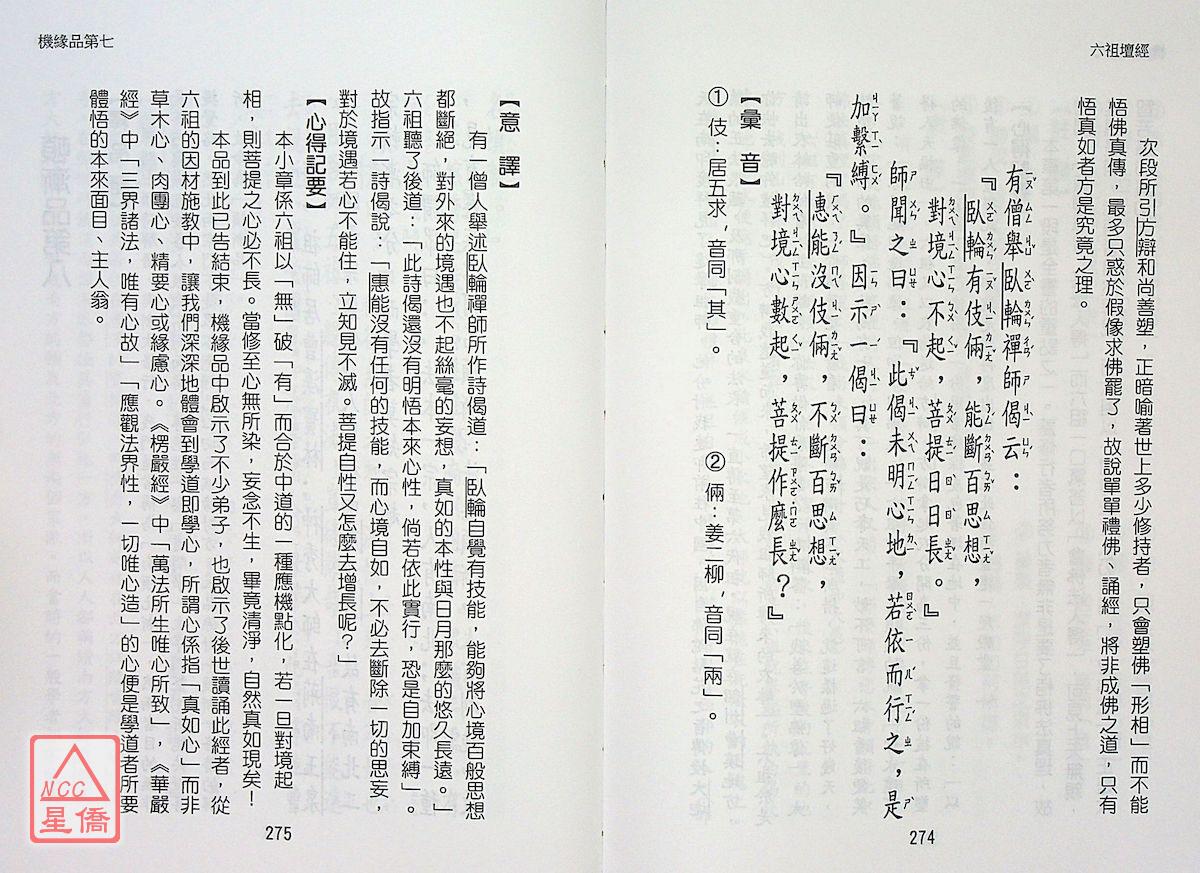 六祖壇經
次段所引方辯和尚善塑，正暗喻著世上多少修持者，只會塑佛「形相」而不能
悟佛真傳，最多只惑於假像求佛罷了，故說單單禮佛、誦經，將非成佛之道，只有
悟真如者方是究竟之理。
有僧舉臥輪禪師偈云：
『臥輪有伎倆，能斷百思想，
對境心不起，菩提日日長。』
師聞之曰：『此偈未明心地，若依而行之，是
加繫縛。』因示一偈曰：
『惠能沒伎倆，不斷百思想，
對境心數起，菩提作麼長？』
【彙 音】
①伎：居五求，音同「其」。 ②倆：姜二柳，音同「兩」。
274
機緣品第七
【意 譯】
有一僧人舉述臥輪禪師所作詩偈道：「臥輪自覺有技能，能夠將心境百般思想
都斷絕，對外來的境遇也不起絲毫的妄想，真如的本性與日月那麼的悠久長遠。」
六祖聽了後道：「此詩偈還沒有明悟本來心性，倘若依此實行，恐是自加束縛」。
故指示一詩偈說：「惠能沒有任何的技能，而心境自如，不必去斷除一切的思妄，
對於境遇若心不能住，立知見不滅。菩提自性又怎麼去增長呢？」
【心得記要】
本小章係六祖以「無」破「有」而合於中道的一種應機點化，若一旦對境起
相，則菩提之心必不長。當修至心無所染，妄念不生，畢竟清淨，自然真如現矣！
本品到此已告結束，機緣品中啟示了不少弟子，也啟示了後世讀誦此經者，從
六祖的因材施教中，讓我們深深地體會到學道即學心，所謂心係指「真如心」而非
草木心、肉團心、精要心或緣慮心。《楞嚴經》中「萬法所生唯心所致」，《華嚴
經》中「三界諸法，唯有心故」「應觀法界性，一切唯心造」的心便是學道者所要
體悟的本來面目、主人翁。
275
NCC
星僑